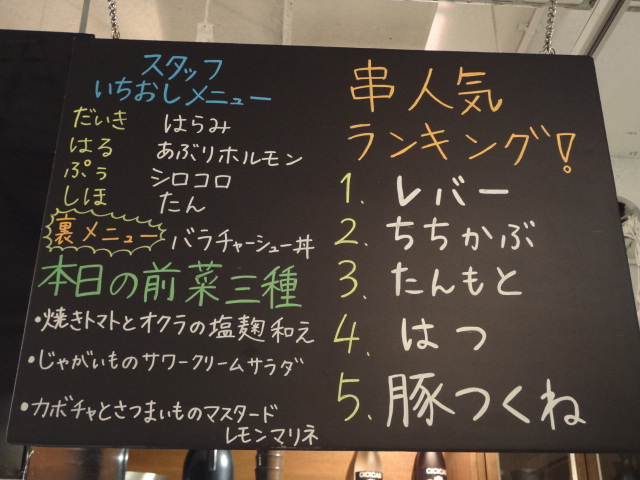 スタッフ
いちおしメニュー
だいき はらみ
はる あぶりホルモン
ぷぅ シロコロ
しほ たん
裏メニュー バラチャーシュー丼
本日の前菜三種
・焼きトマトとオクラの塩麹和え
・じゃがいものサワークリームサラダ
・カボチャとさつまいものマスタード
レモンマリネ
串人気
ランキング!
1. レバー
2. ちちかぶ
3. たんもと
4. はつ
5. 豚つくね